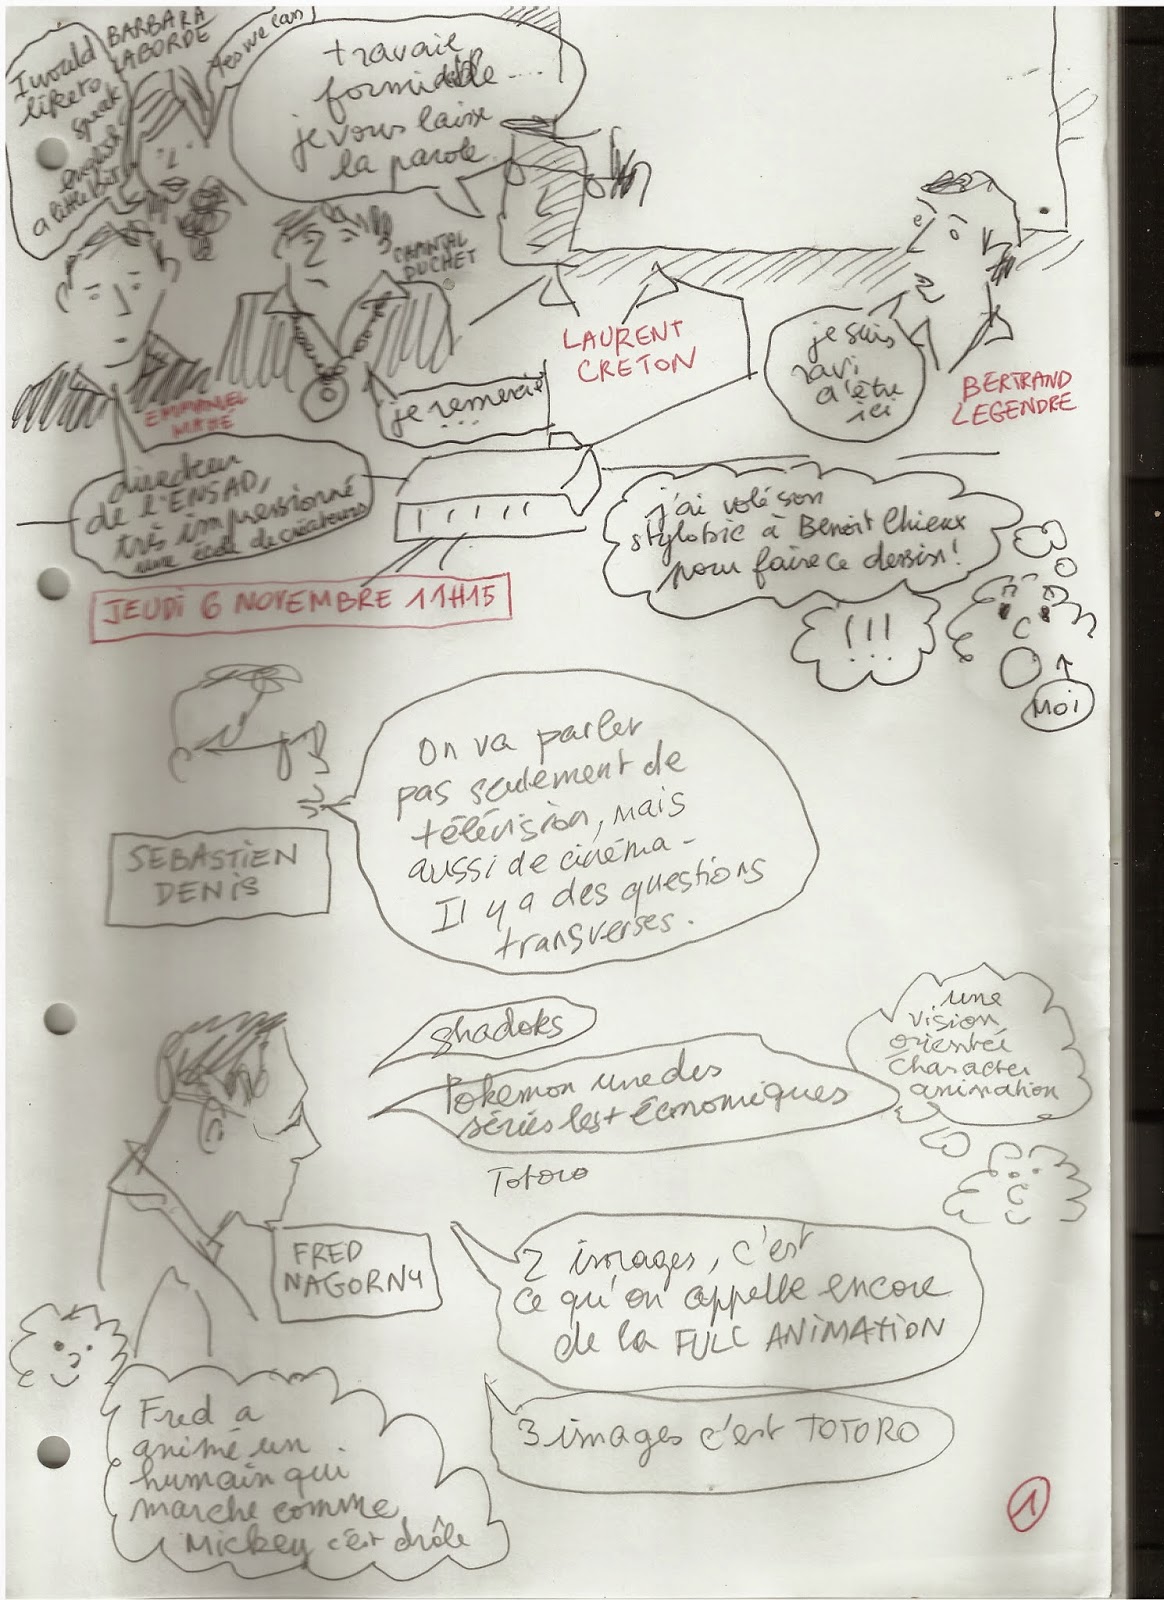 I would
like to
speak
english
a little bit
BARBARA
LABORDE
Yes we can
travail
formidable....
je vous laisse
la parole
CHANTAL
DUCHET
EMMANUEL
MAHÉ
je remercie
...
LAURENT
CRETON
je suis
ravi
d'être
ici
BERTRAND
LEGENDRE
directeur
de l'ENSAD,
très impressionné
une école de créateurs
j'ai volé son
stylobic à Benoit Chieux
pour faire ce dessin!
!!!
MOI
JEUDI 6 NOVEMBRE 11H15
On va parler
pas seulement de
télévision, mais
aussi de cinéma -
Il y a des questions
transverses.
SEBASTIEN
DENIS
shadoks
Pokemon une des
séries les + économiques
Totoro
une
vision
orientée
character
animation
FRED
NAGORNY
2 images, c'est
ce qu'on appelle encore
de la FULL ANIMATION
3 images c'est TOTORO
Fred a
animé un
humain qui
marche comme
Mickey c'est drôle
1